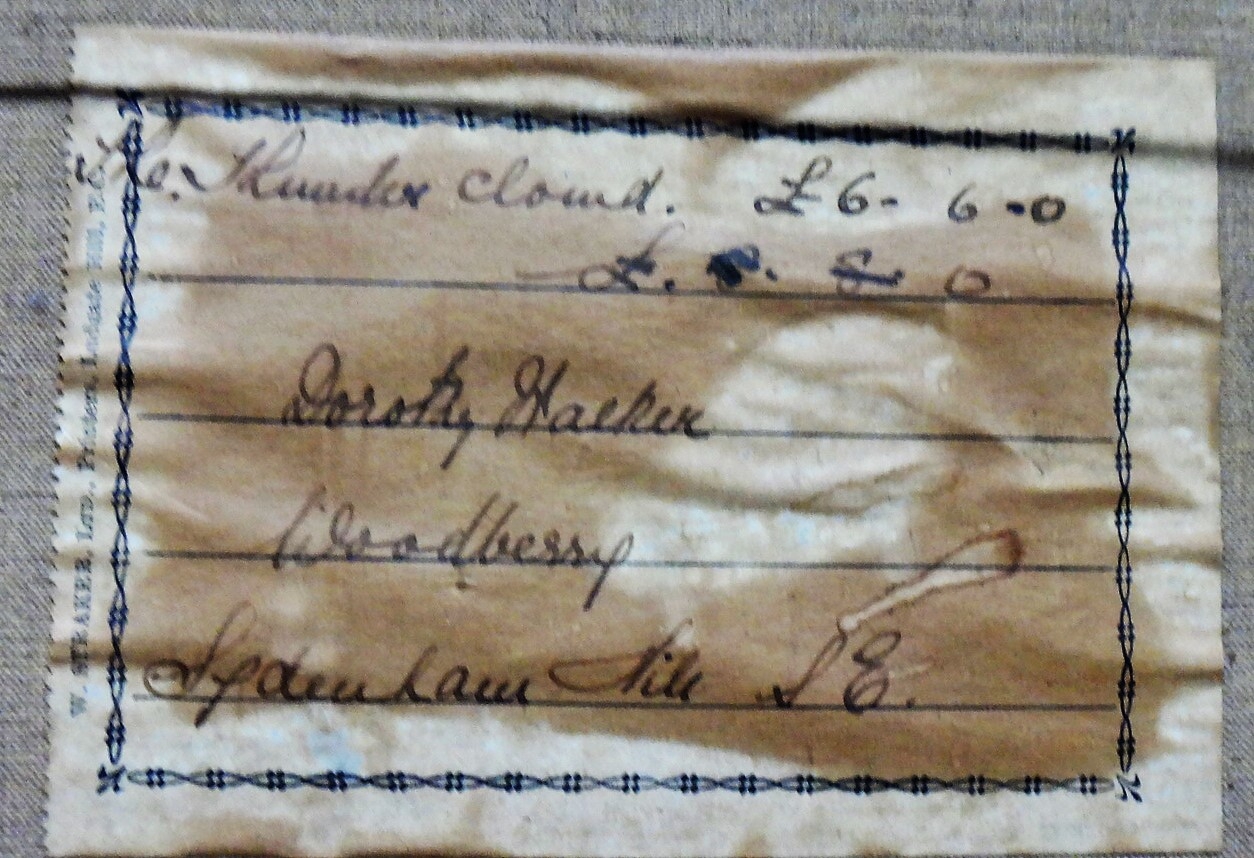 The. Thunder cloud. £6- 6-0
£. 0
Dorothy
Woodberry
Sydenham Hill S E.
W. STRAKER, LTD., Printers, Ludgate Hill, E.C.